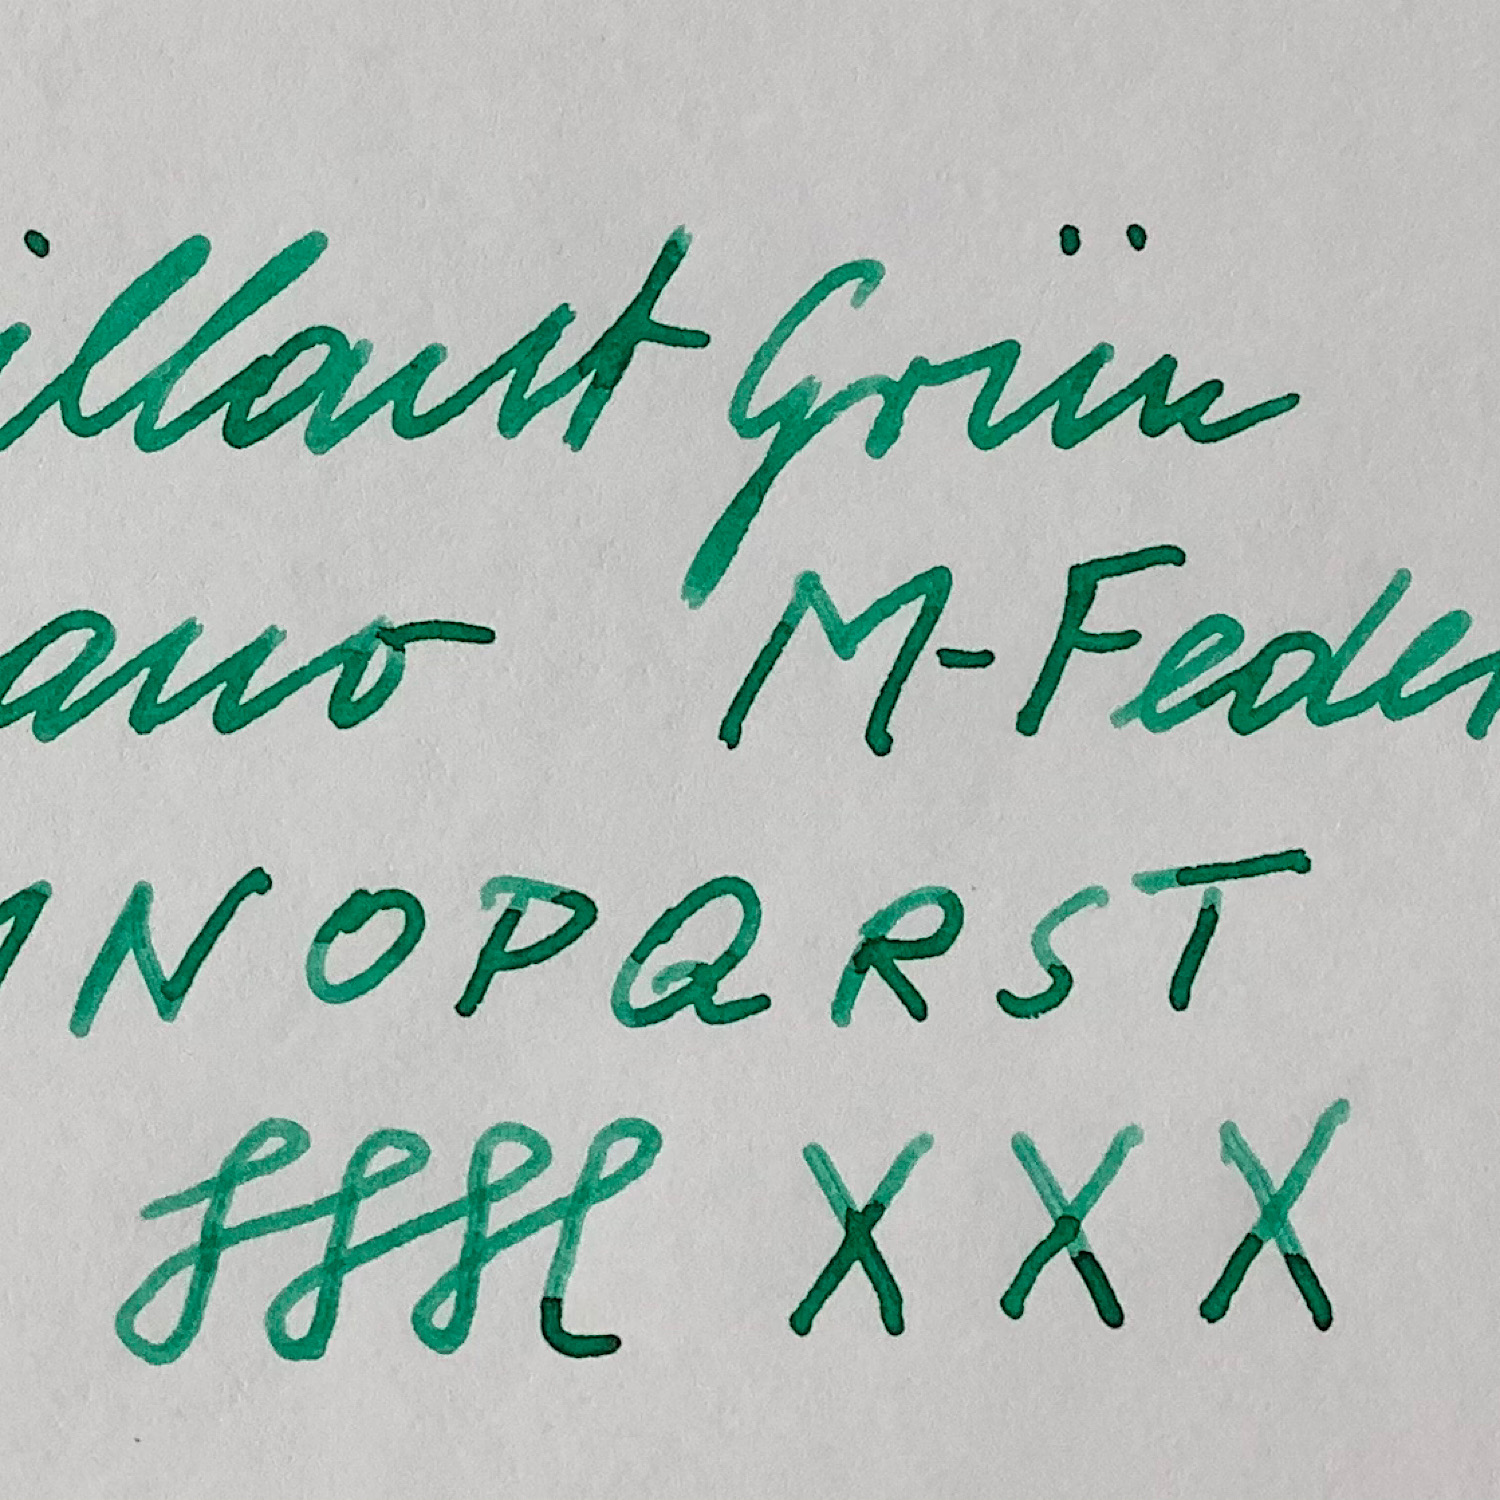 illant Grün
ano M-Feder
M N O P Q R S T
X X X